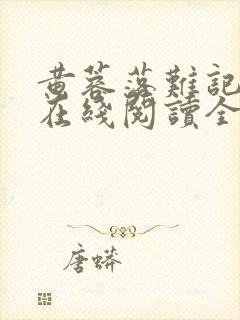 黄蓉落難記
在綫閱讀全
唐蟒